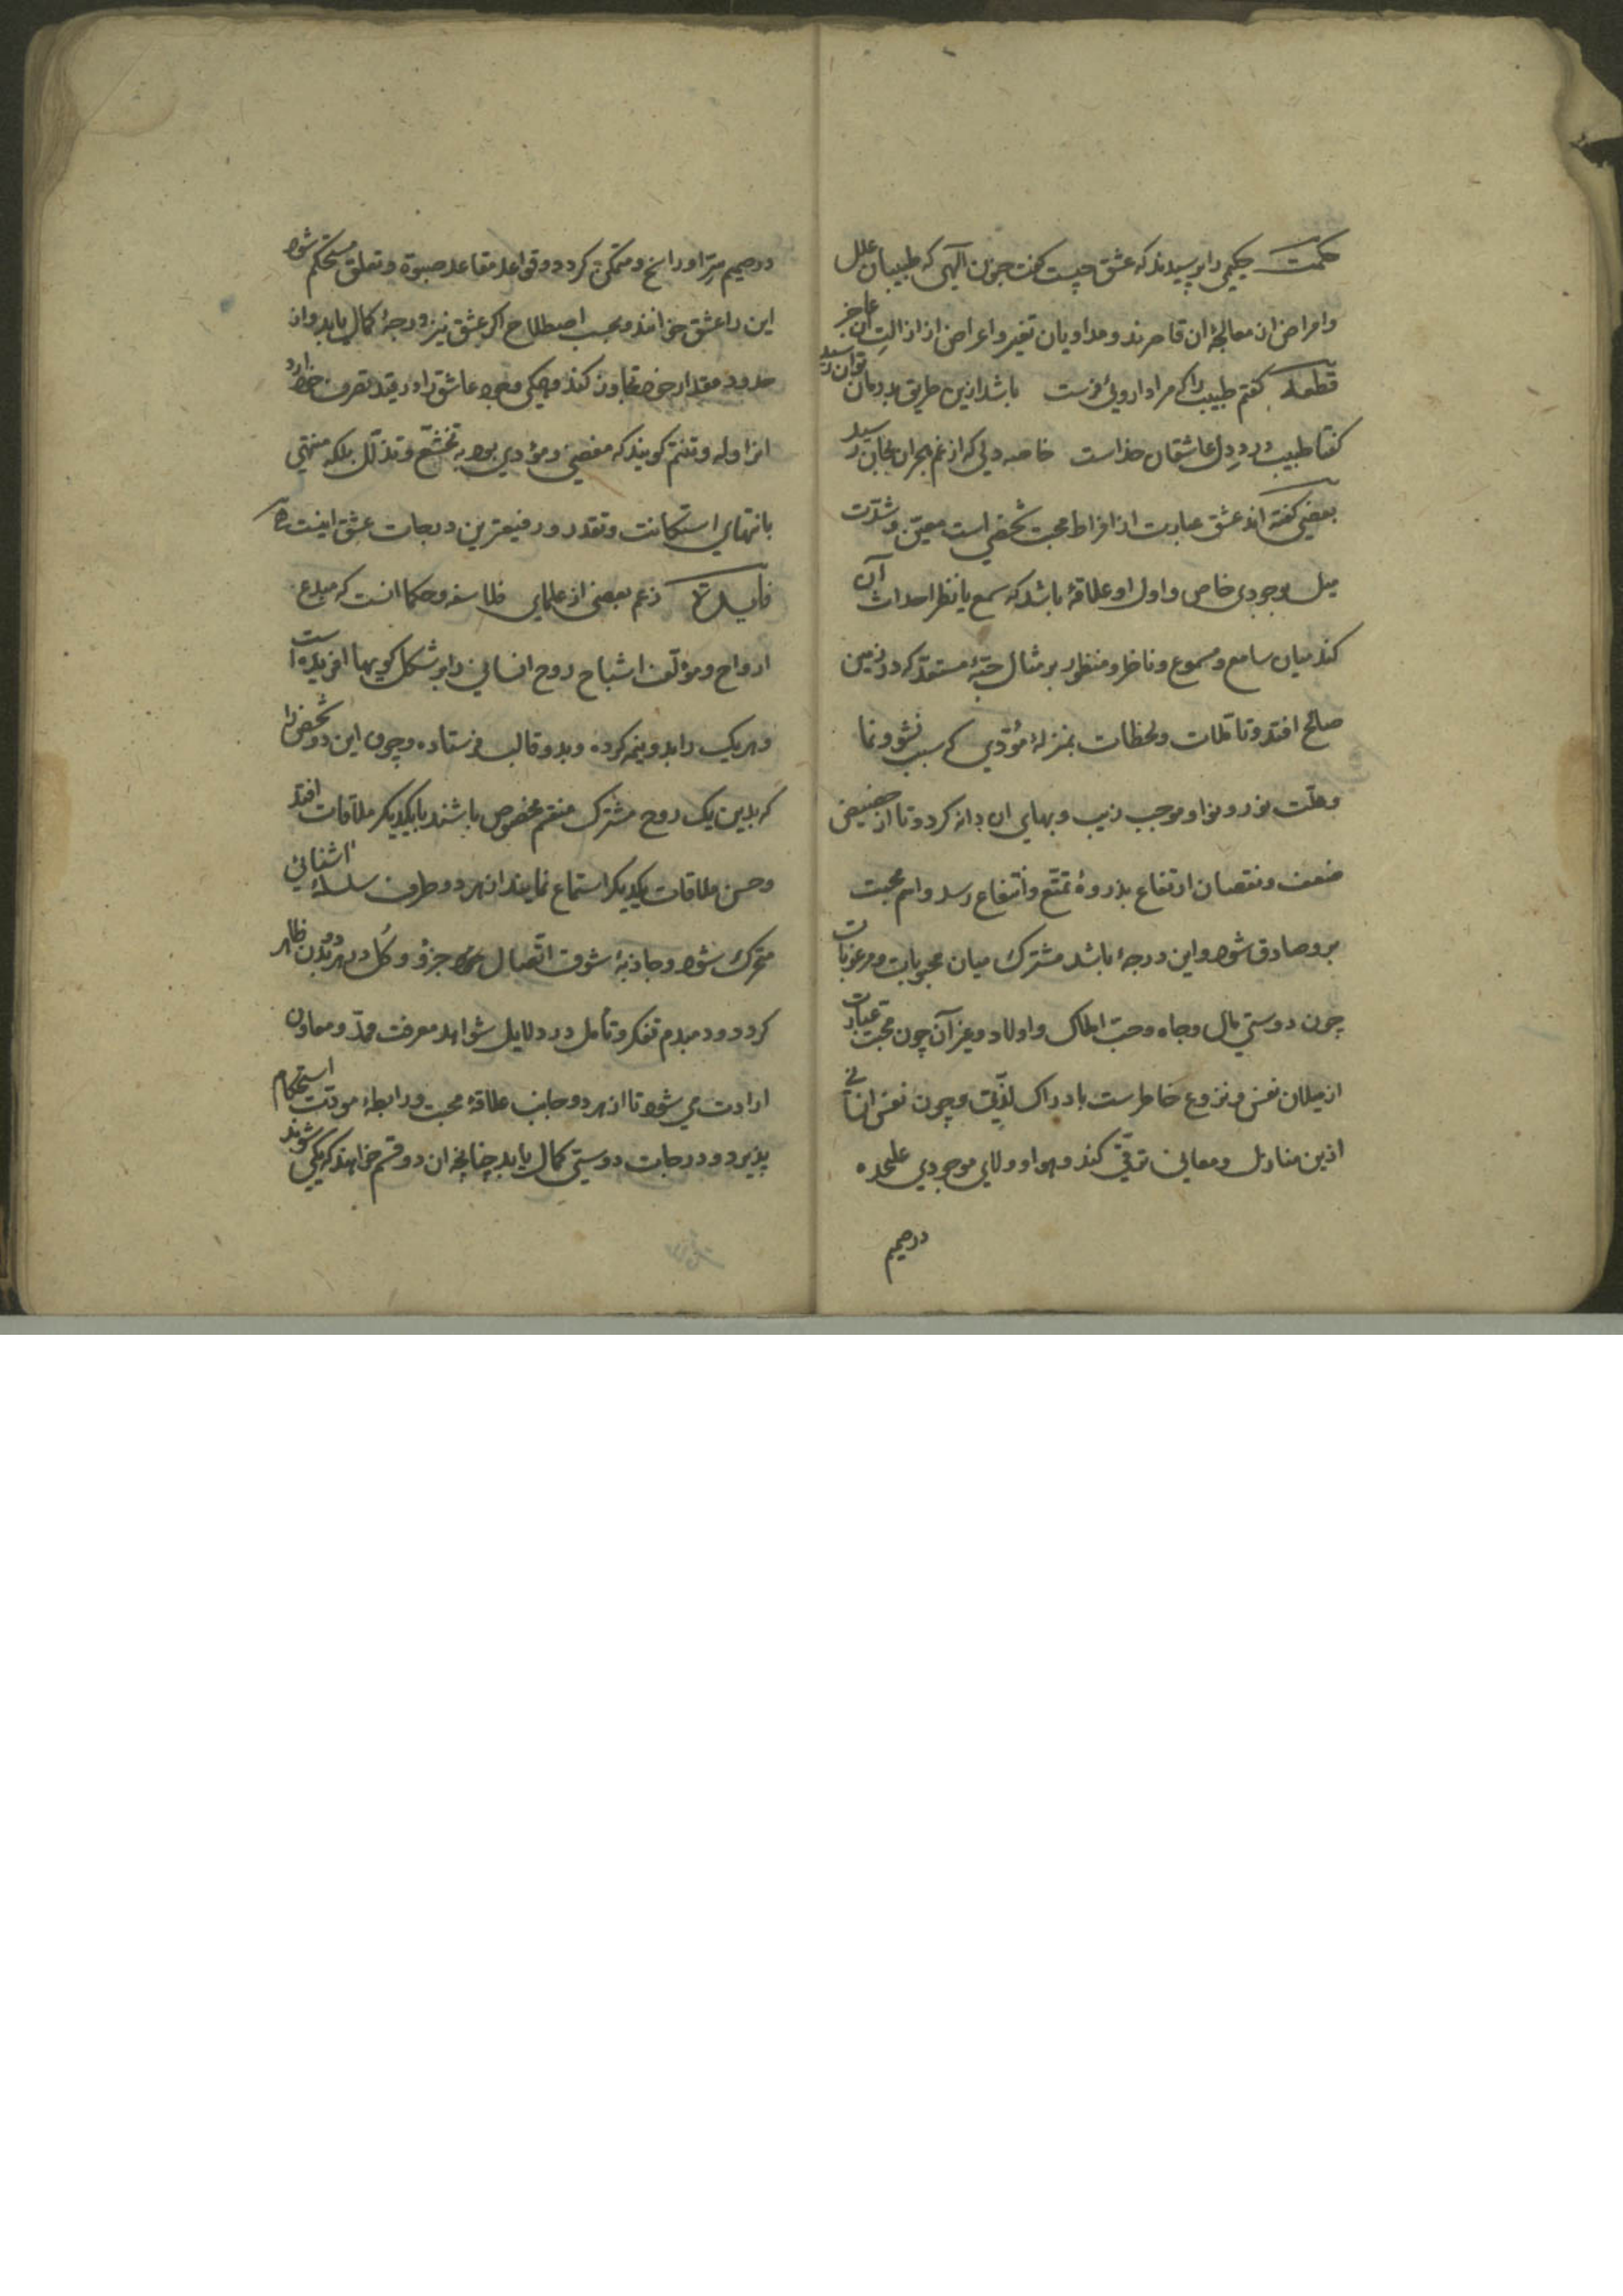 حکمت حکیمی را پرسیدند که عشق چیست گفت جنون آلهی که طبیبان علل
و امراض از معالجۀ آن قاصرند و مداویان تغیر و اعراض از ازالت آن عاجز
قطعه گفتم طبیب را که مرا دارویی فرست باشد ازین طریق بدرمان توان رسید
کفتا طبیب درد دل عاشقان خداست خاصه دلی که از غم هجران بجان رسید
بعضی کفته اند عشق عبارت از افراط محبت شخصی است معین و شدّت
میل بوجودی خاص و اول او علاقۀ باشد که سمع یا نظر احداث آن
کند میان سامع و مسموع و ناظر و منظور بر مثال حبّۀ مستعدّ که در زمین
صالح افتد و تاملات و لحظات بمنزلۀ مؤدّی که سبب نشو و نما
و علّت نور و نوا و موجب زیب و بهای ان دانه کردد تا از حضیض
ضعف و نقصان ارتفاع بذروۀ تمتّع و انتفاع رسد و اسم محبت
برو صادق شود و این درجۀ باشد مشترک میان محبوبات و مرغوبات
چون دوستی مال و جاه و حبّ املاک و اولاد و غیر آن چون محبت عبارت
از میلان نفس و نزوع خاطرست بادراک لذّتی و چون نفس انسانی
ازین منازل و معانی ترقّی کند و هوا و ولای موجودی علیحده
در صمیم
در صمیم سرّ او راسخ و متمکّن کردد و قواعد مقاعد صبوة و تعلق مستحکم شود
این را عشق خوانند و بحسب اصطلاح اکر عشق نیز درجۀ کمال یابد و از
حدود مقدار خود تجاوز کند و همکی وجود عاشق را در قید تصرف خود آرد
انرا وله و تتیّم کویند که مفضی و مؤدی بود به تخشّع و تذلّل بلکه منتهی
بانتهای استکانت و تقدر و رفیعترین درجات عشق اینست
فایده زعم بعضی از علمای فلاسفه و حکما انست که مبدع
ارواح و مؤلّف اشباح روح انسانی را بر شکل کویها افریده است
و هر یک را بدو نیم کرده و بدو قالب فرستاده و چون این دو شخص را
که بدین یک روح مشترک منقسم مخصوص باشند با یکدیکر ملاقات افتد
و حسن ملاقات یکدیکر استماع نمایند از هر دو طرف سلسلۀ اشنائی
متحرک شود و جاذبۀ شوق اتّصال جزؤ و کُل در هر دو بدن ظاهر
کردد و دمبدم تفکر و تأمل در دلایل شواهد معرفت ممدّ و معاون
ارادت می شود تا از هر دو جانب علاقۀ محبت و رابطۀ مودت استحکام
پذیرد و درجات دوستی کمال یابد چنانچه ان دو قسم خواهند که یکی شوند